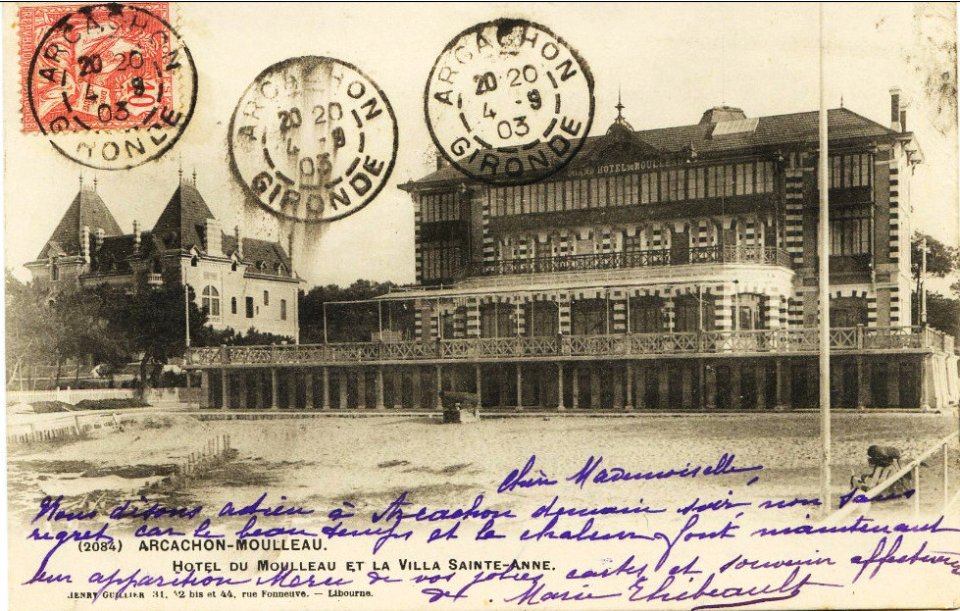 ARCACHON
20 20
4 - 9
03
GIRONDE
10
ARCACHON
20 20
4 - 9
03
GIRONDE
ARCACHON
20 20
4 - 9
03
GIRONDE
HOTEL DU MOULLEAU
Chère Mademoiselle
Nous disons adieu à Arcachon demain soir, non sans
regret car le beau temps et la chaleur font maintenant
leur apparition Merci de vos jolies cartes et souvenir affectueux
de Marie Thibeault
(2084) ARCACHON-MOULLEAU.
HOTEL DU MOULLEAU ET LA VILLA SAINTE-ANNE.
HENRY GUILLIER 31, 42 bis et 44, rue Fonneuve. - Libourne.